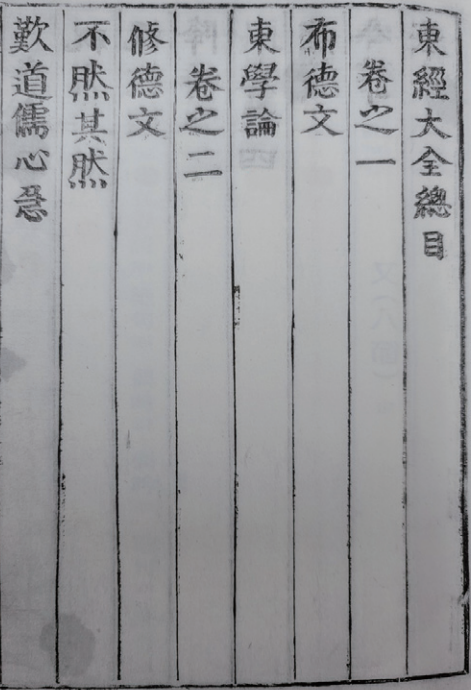 東經大全總目
卷之一
布德文
東學論
卷之二
修德文
不然其然
歎道儒心急